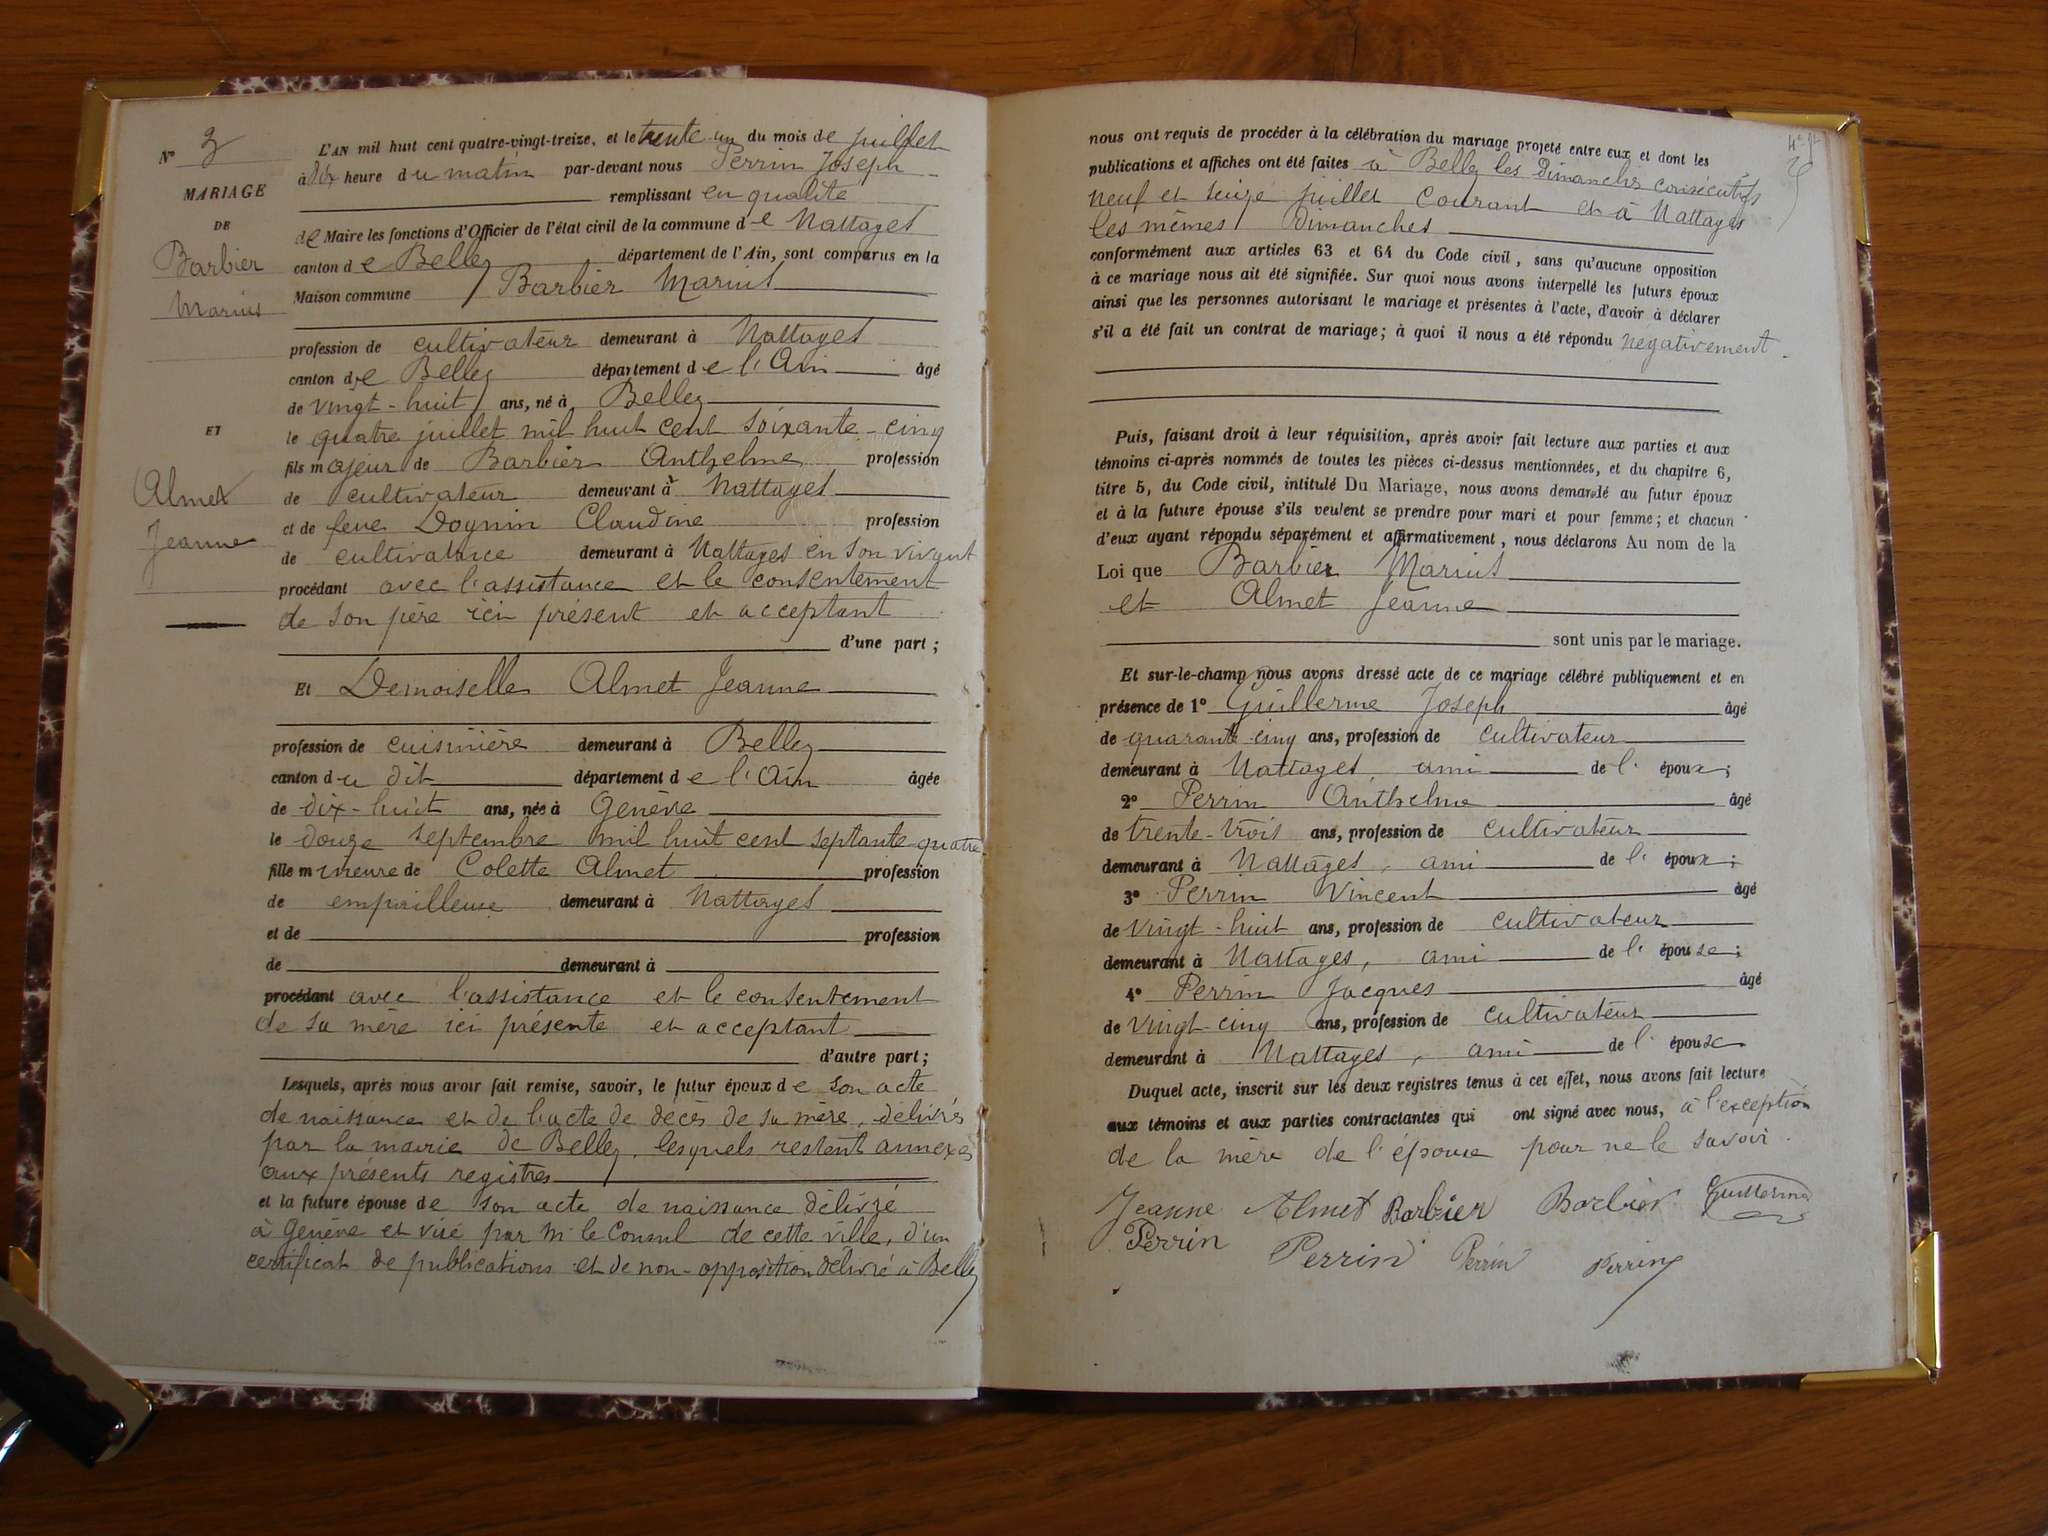 N° 3
MARIAGE
DE
Barbier
Marius
ET
Almet
Jeanne
L'AN mil huit cent quatre-vingt-treize, et le trente-un du mois de juillet
à dix heure du matin par-devant nous Perrin Joseph
remplissant en qualité
de Maire les fonctions d'Officier de l'état civil de la commune de Nattages
canton de Belley département de l'Ain, sont comparus en la
Maison commune Barbier Marius
profession de cultivateur demeurant à Nattages
canton de Belley département de l'Ain âgé
de vingt-huit ans, né à Belley
le quatre juillet mil huit cent soixante-cinq
fils majeur de Barbier Anthelme profession
de cultivateur demeurant à Nattages
et de feue Dognin Claudine profession
de cultivatrice demeurant à Nattages en son vivant
procédant avec l'assistance et le consentement
de son père ici présent et acceptant
d'une part ;
Et Demoiselle Almet Jeanne
profession de cuisinière demeurant à Belley
canton du dit département de l'Ain âgée
de dix-huit ans, née à Genève
le douze septembre mil huit cent septante quatre
fille mineure de Colette Almet profession
de empailleuse demeurant à Nattages
et de profession
de demeurant à
procédant avec l'assistance et le consentement
de sa mère ici présente et acceptant
d'autre part ;
Lesquels, après nous avoir fait remise, savoir, le futur époux de son acte
de naissance et de l'acte de décès de sa mère, délivrés
par la mairie de Belley, lesquels restent annexés
aux présents registres
et la future épouse de son acte de naissance délivré
à Genève et visé par Mr le Consul de cette ville, d'un
certificat de publications et de non-opposition délivré à Belley
nous ont requis de procéder à la célébration du mariage projeté entre eux et dont les
publications et affiches ont été faites à Belley les Dimanches consécutifs
neuf et seize juillet courant et à Nattages
les mêmes Dimanches
conformément aux articles 63 et 64 du Code civil, sans qu'aucune opposition
à ce mariage nous ait été signifiée. Sur quoi nous avons interpellé les futurs époux
ainsi que les personnes autorisant le mariage et présentes à l'acte, d'avoir à déclarer
s'il a été fait un contrat de mariage ; à quoi il nous a été répondu négativement.
Puis, faisant droit à leur réquisition, après avoir fait lecture aux parties et aux
témoins ci-après nommés de toutes les pièces ci-dessus mentionnées, et du chapitre 6,
titre 5, du Code civil, intitulé Du Mariage, nous avons demandé au futur époux
et à la future épouse s'ils veulent se prendre pour mari et pour femme ; et chacun
d'eux ayant répondu séparément et affirmativement, nous déclarons Au nom de la
Loi que Barbier Marius
et Almet Jeanne
sont unis par le mariage.
Et sur-le-champ nous avons dressé acte de ce mariage célébré publiquement et en
présence de 1° Guillerme Joseph âgé
de quarante-cinq ans, profession de cultivateur
demeurant à Nattages, ami de l'époux ;
2° Perrin Anthelme âgé
de trente-trois ans, profession de cultivateur
demeurant à Nattages, ami de l'époux ;
3° Perrin Vincent âgé
de vingt-huit ans, profession de cultivateur
demeurant à Nattages, ami de l'épouse ;
4° Perrin Jacques âgé
de vingt-cinq ans, profession de cultivateur
demeurant à Nattages, ami de l'épouse
Duquel acte, inscrit sur les deux registres tenus à cet effet, nous avons fait lecture
aux témoins et aux parties contractantes qui ont signé avec nous, à l'exception
de la mère de l'épouse pour ne le savoir.
Jeanne Almet Barbier Barbier Guillerme
Perrin Perrin Perrin Perrin